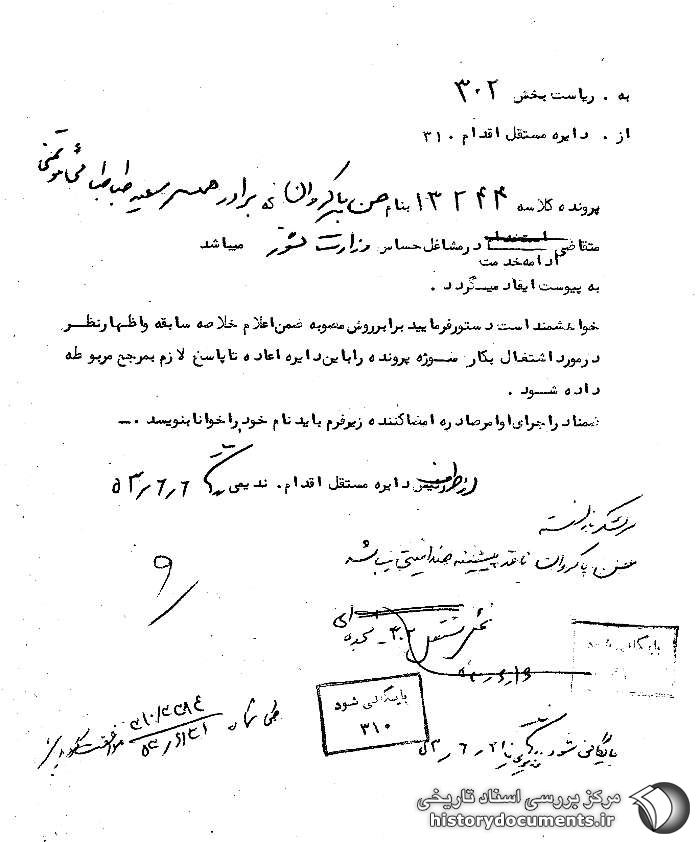 به . ریاست بخش ۳۰۲
از . دایره مستقل اقدام ۳۱۰
پرونده کلاسه ۱۳۲۴۴ بنام حسن پاکروان که برادر همسر سعید طباطبائی
متقاضی استخدام در مشاغل حساس وزارت کشور میباشد
ادامه خدمت
به پیوست ایفاد میگردد .
خواهشمند است دستور فرمایید برابر روش مصوبه ضمن اعلام خلاصه سابقه و اظهار نظر
در مورد اشتغال بکار سوژه پرونده را باین دایره اعاده تا پاسخ لازم بمرجع مربوطه
داده شود .
ضمناد راجرای اوامر صادره امضا کننده زیر فرم باید نام خود را خوانا بنویسد .
از طرف رئیس دایره مستقل اقدام . ندیمی ۵۳٫۶٫۶
حسن پاکروان فاقد پیشینه ضد امنیتی میباشد
بایگانی شود
بایگانی شود
۳۱۰
طی شماره
بایگانی شود
مرکز بررسی اسناد تاریخی
historydocuments.ir